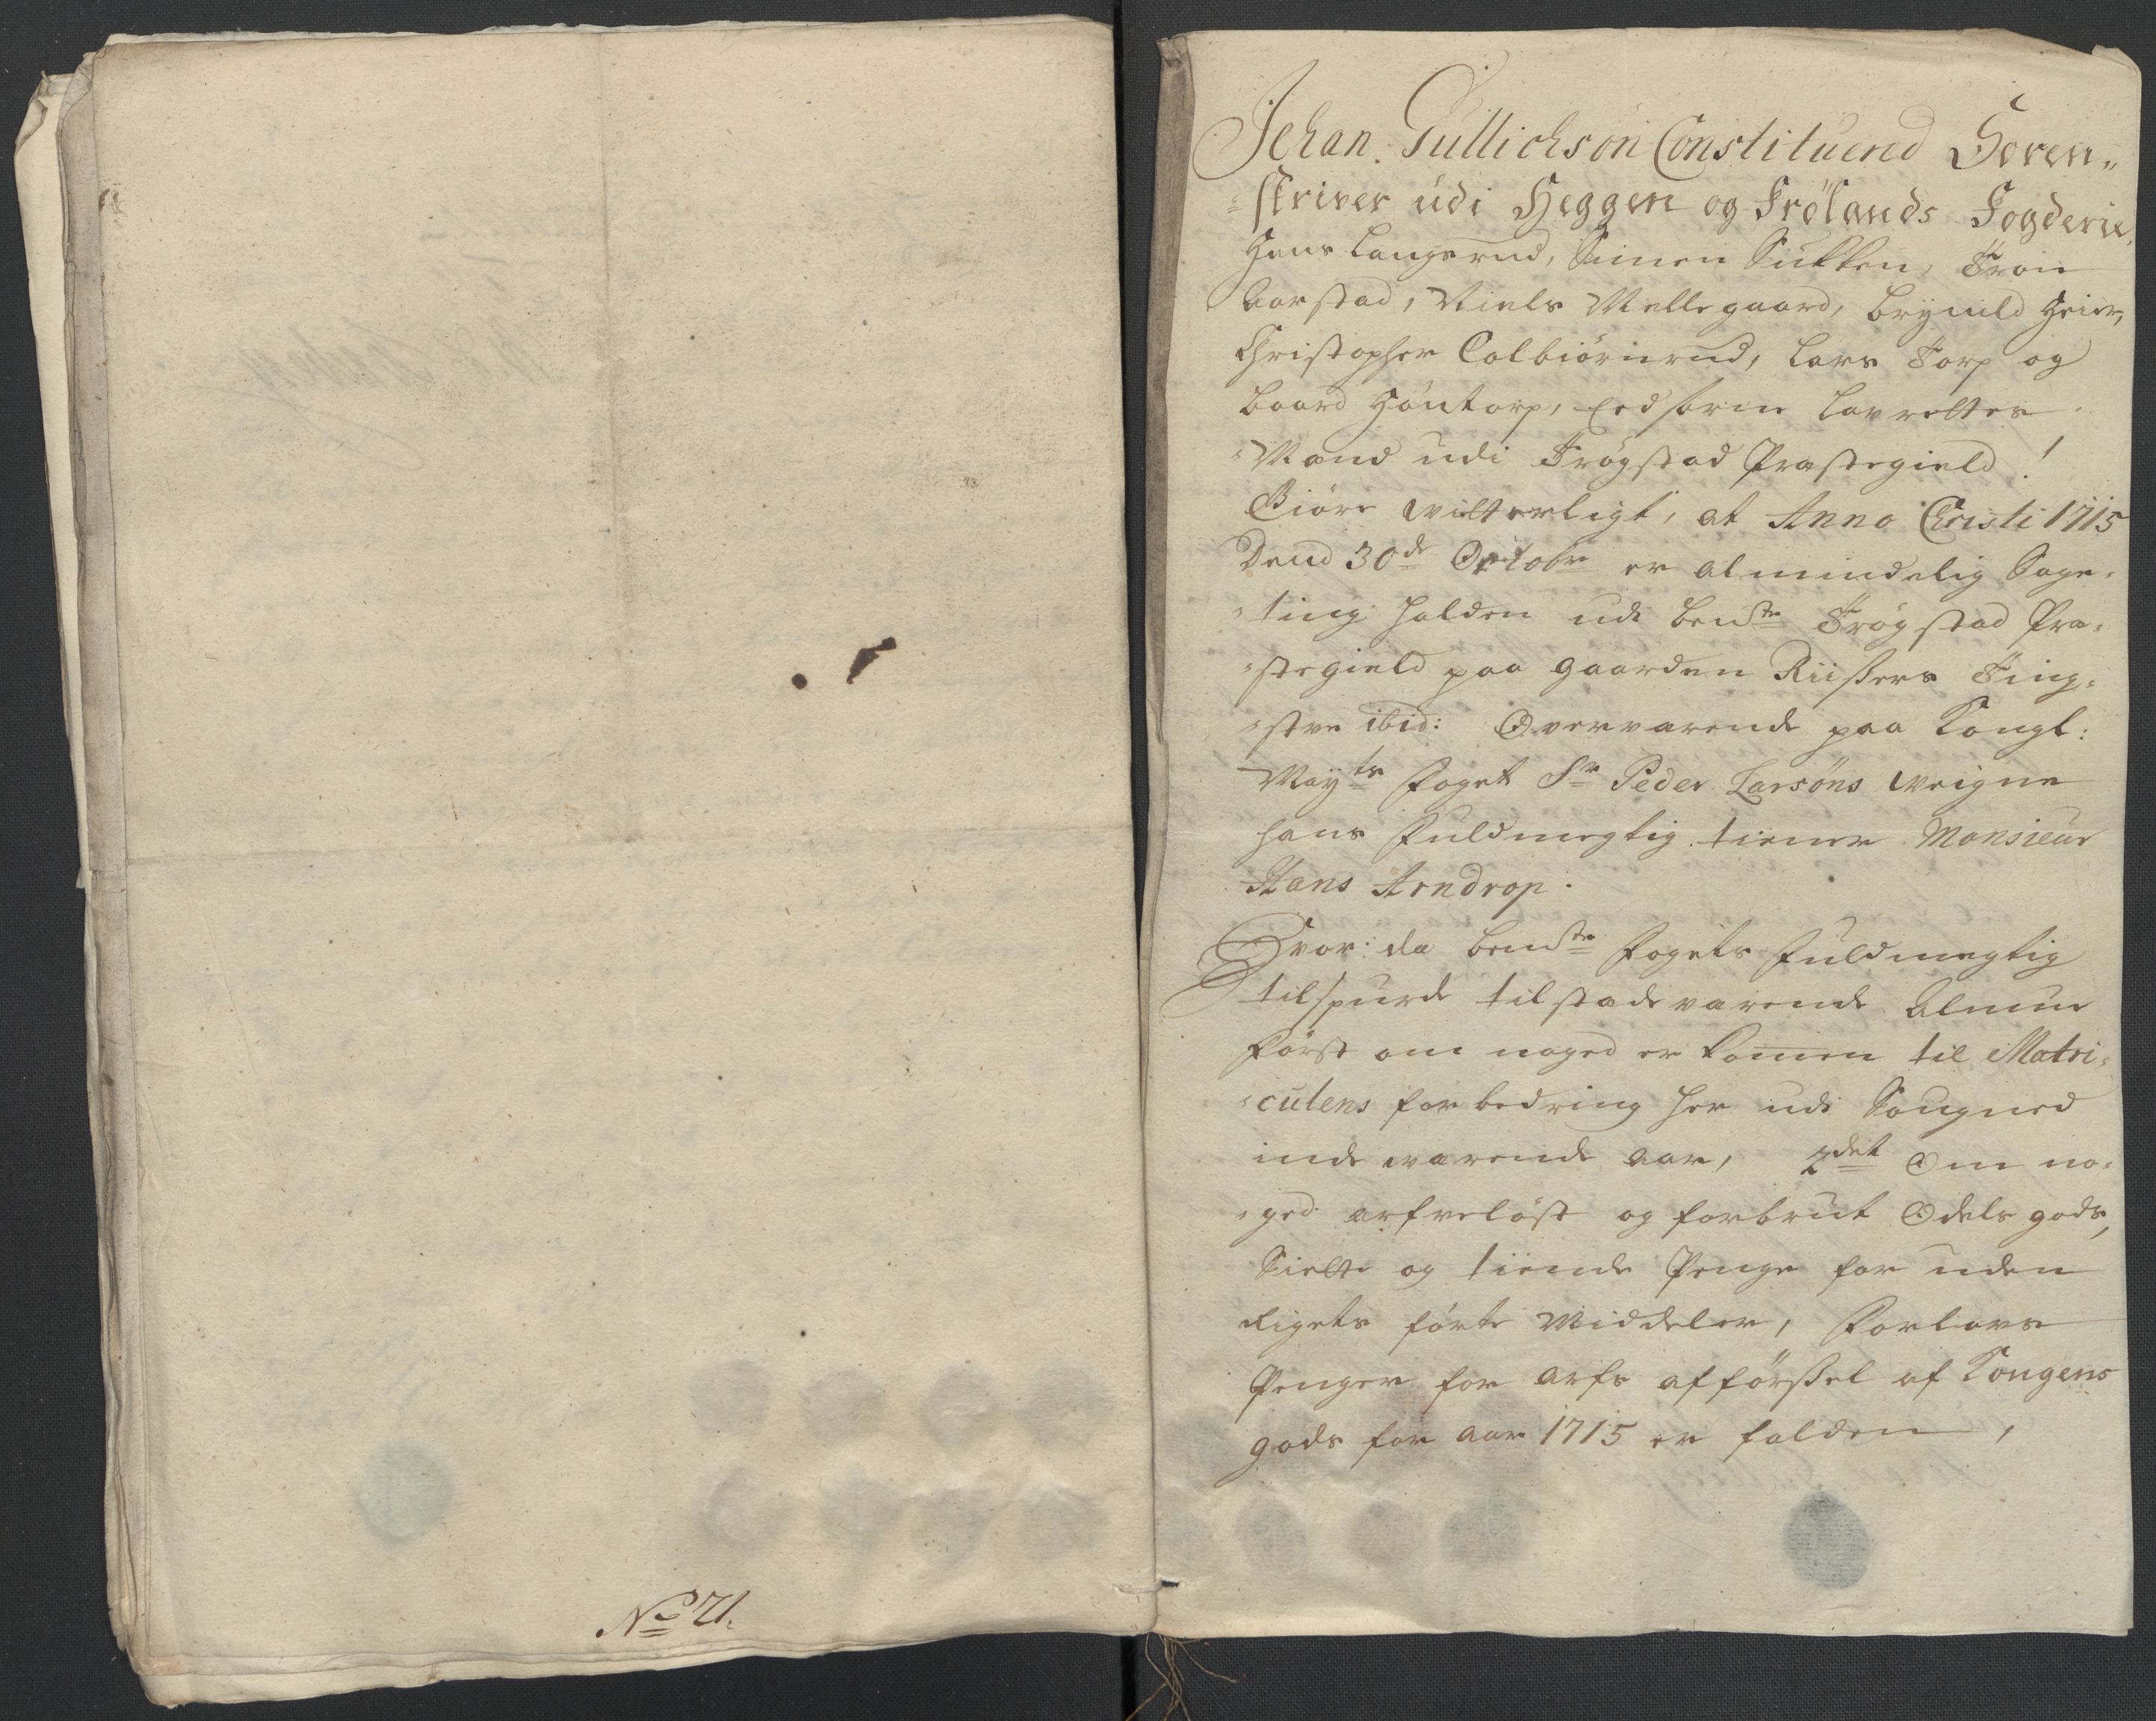 No 21.
Jehan Gullichsön Constituered Soren„
„skriver udi Heggen og Frölands Fogderie,
Hans Langerud, Simen Sukken, Tron
Aarstad, Niels Mellegaard, Brynild Heier,
Christopher Colbiörnrud, Lars Torp og
Baard Höntorp, Eedsorne Lavrettes
Mænd udi Trögstad Præstegield!
Giöre Witterligt, at Anno Cristi 1715
Dend 30de Octobr er almindelig Sage„
„ting holden udi bemte Trögstad Præ„
„stegield paa gaarden Riissers Ting„
„stue ibid: Overværende paa Kongl:
Mayts Foget Sr Peder Larsöns Weigne
hans Fuldmegtig tiener Monsieur
Hans Arndrop.
Hvor da bemte Fogets Fuldmegtig
tilspurde tilstædeværende Almue
först om noged er kommen til Matri„
„culens forbedring her udi Sougned
indeværende aar, 2det Om no„
„ged arfvelöst og forbrut Odels gods,
Siette og tiende Penge for uden
Rigets förte Middeler, Forlovs
Penger for arfs afförssel af Kongens
gods for aar 1715 er falden,